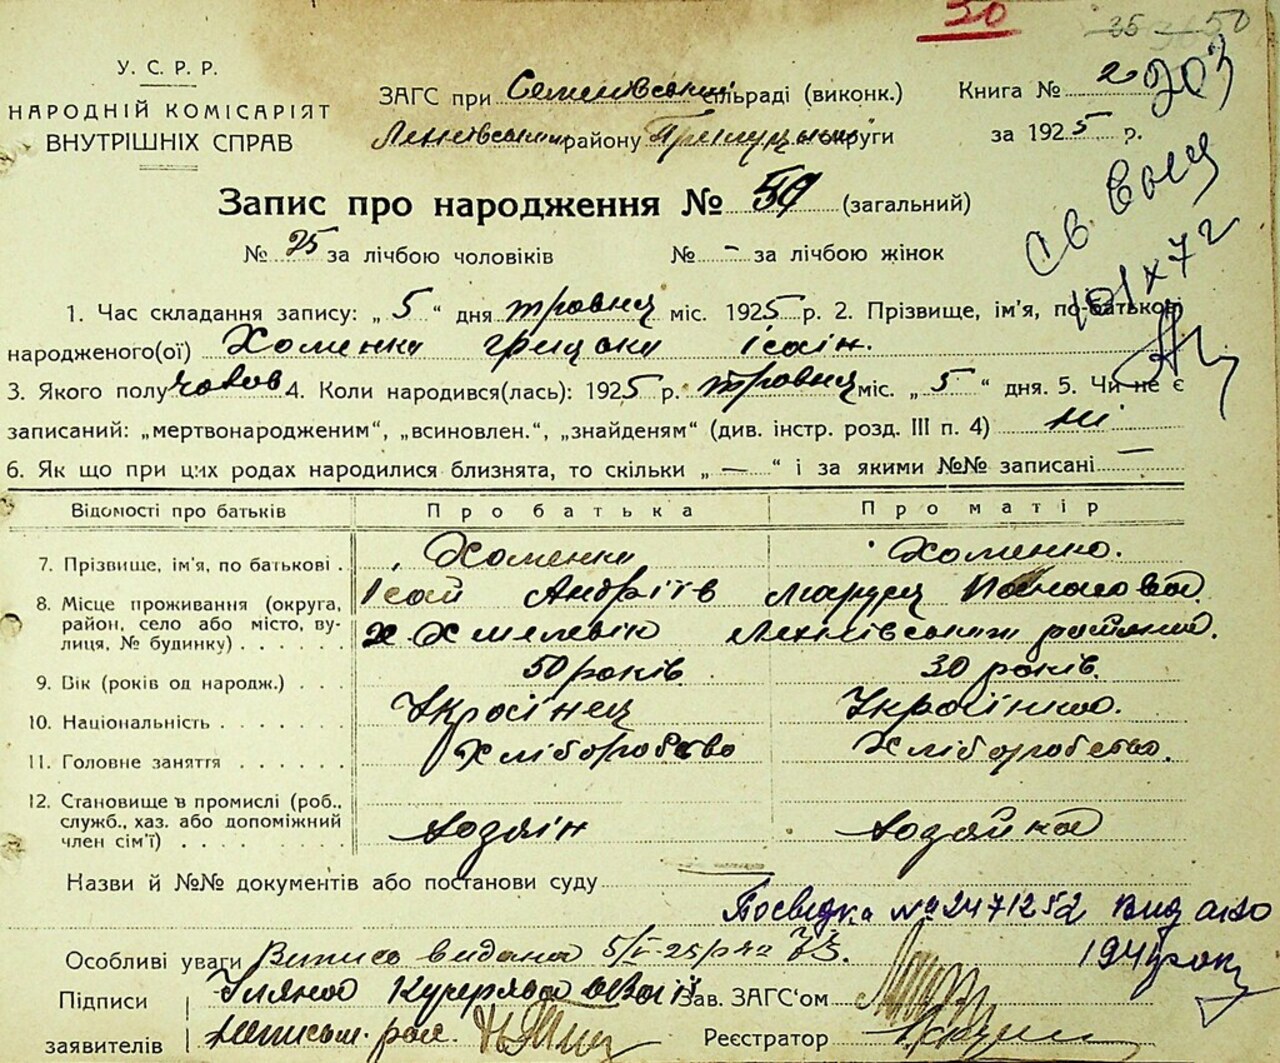 50
35 50
У. С. Р. Р.
НАРОДНІЙ КОМІСАРІЯТ
ВНУТРІШНІХ СПРАВ
ЗАГС при Семенівській сільраді (виконк.)
району Прилуцької округи
Книга № 2
203
за 1925 р.
Запис про народження № 59 (загальний)
№ 25 за лічбою чоловіків № – за лічбою жінок
Св.
1. Час складання запису: „ 5 “ дня травня міс. 1925 р. 2. Прізвище, ім'я, по-батькові
народженого(ої) Хоменко Грицько Ісаїв.
3. Якого полу чолов 4. Коли народився(лась): 1925 р. травня міс. „ 5 “ дня. 5. Чи не є
записаний: „мертвонародженим“, „всиновлен.“, „знайденям“ (див. інстр. розд. III п. 4) ні
6. Як що при цих родах народилися близнята, то скільки „ — “ і за якими №№ записані —
Відомості про батьків Про батька Про матір
7. Прізвище, ім'я, по батькові . Хоменко Хоменко.
Ісай Андріїв Маруся Панасова
8. Місце проживання (округа, район, село або місто, вулиця, № будинку) х. Хмелевік районій.
9. Вік (років од народж.) 50 років 30 років.
10. Національність Українец Українка.
11. Головне заняття Хліборобство Хліборобство.
12. Становище в промислі (роб., служб., хаз. або допоміжний член сім'ї) Хозяін Хозяйка
Назви й №№ документів або постанови суду
Посвідка № 2471252 Видано
Особливі уваги Випись видана 5/V-25 р за 73. 1944 року
Підписи Уляна Кучерява Зав. ЗАГС'ом
заявителів Реєстратор